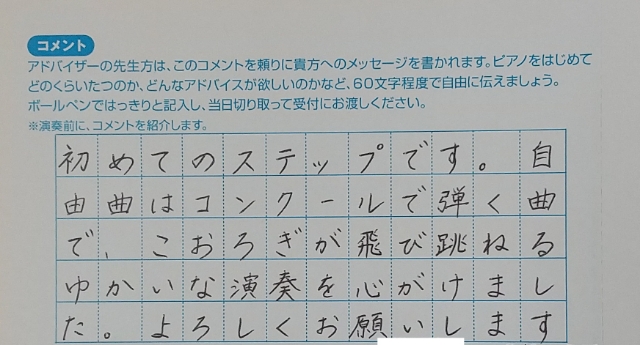 コメント
アドバイザーの先生方は、このコメントを頼りに貴方へのメッセージを書かれます。ピアノをはじめて
どのくらいたつのか、どんなアドバイスが欲しいのかなど、60文字程度で自由に伝えましょう。
ボールペンではっきりと記入し、当日切り取って受付にお渡しください。
※演奏前に、コメントを紹介します。
初めてのステップです。自
由曲はコンクールで弾く曲
で、こおろぎが飛び跳ねる
ゆかいな演奏を心がけまし
た。よろしくお願いします